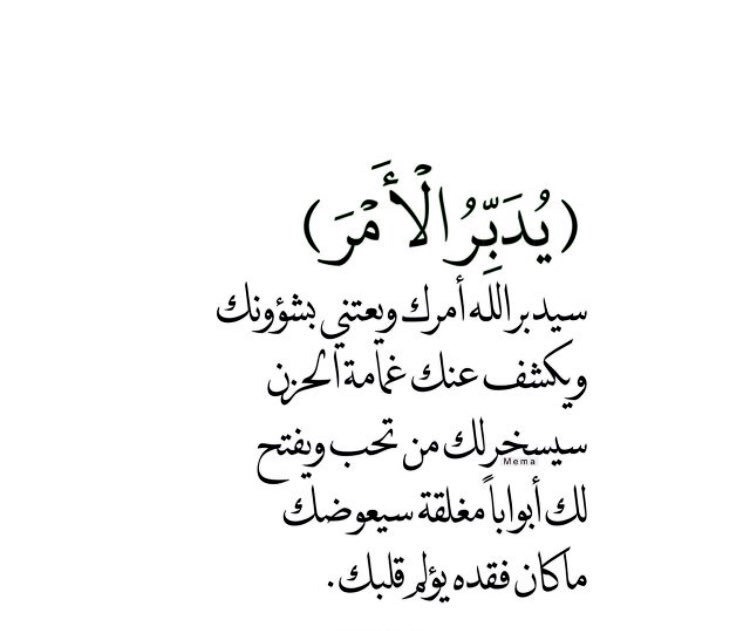 (يُدَبِّرُ الْأَمْرَ)
سيدبر الله أمرك ويعتني بشؤونك
ويكشف عنك غمامة الحزن
سيسخر لك من تحب ويفتح
Mema
لك أبواباً مغلقة سيعوضك
ماكان فقده يؤلم قلبك.